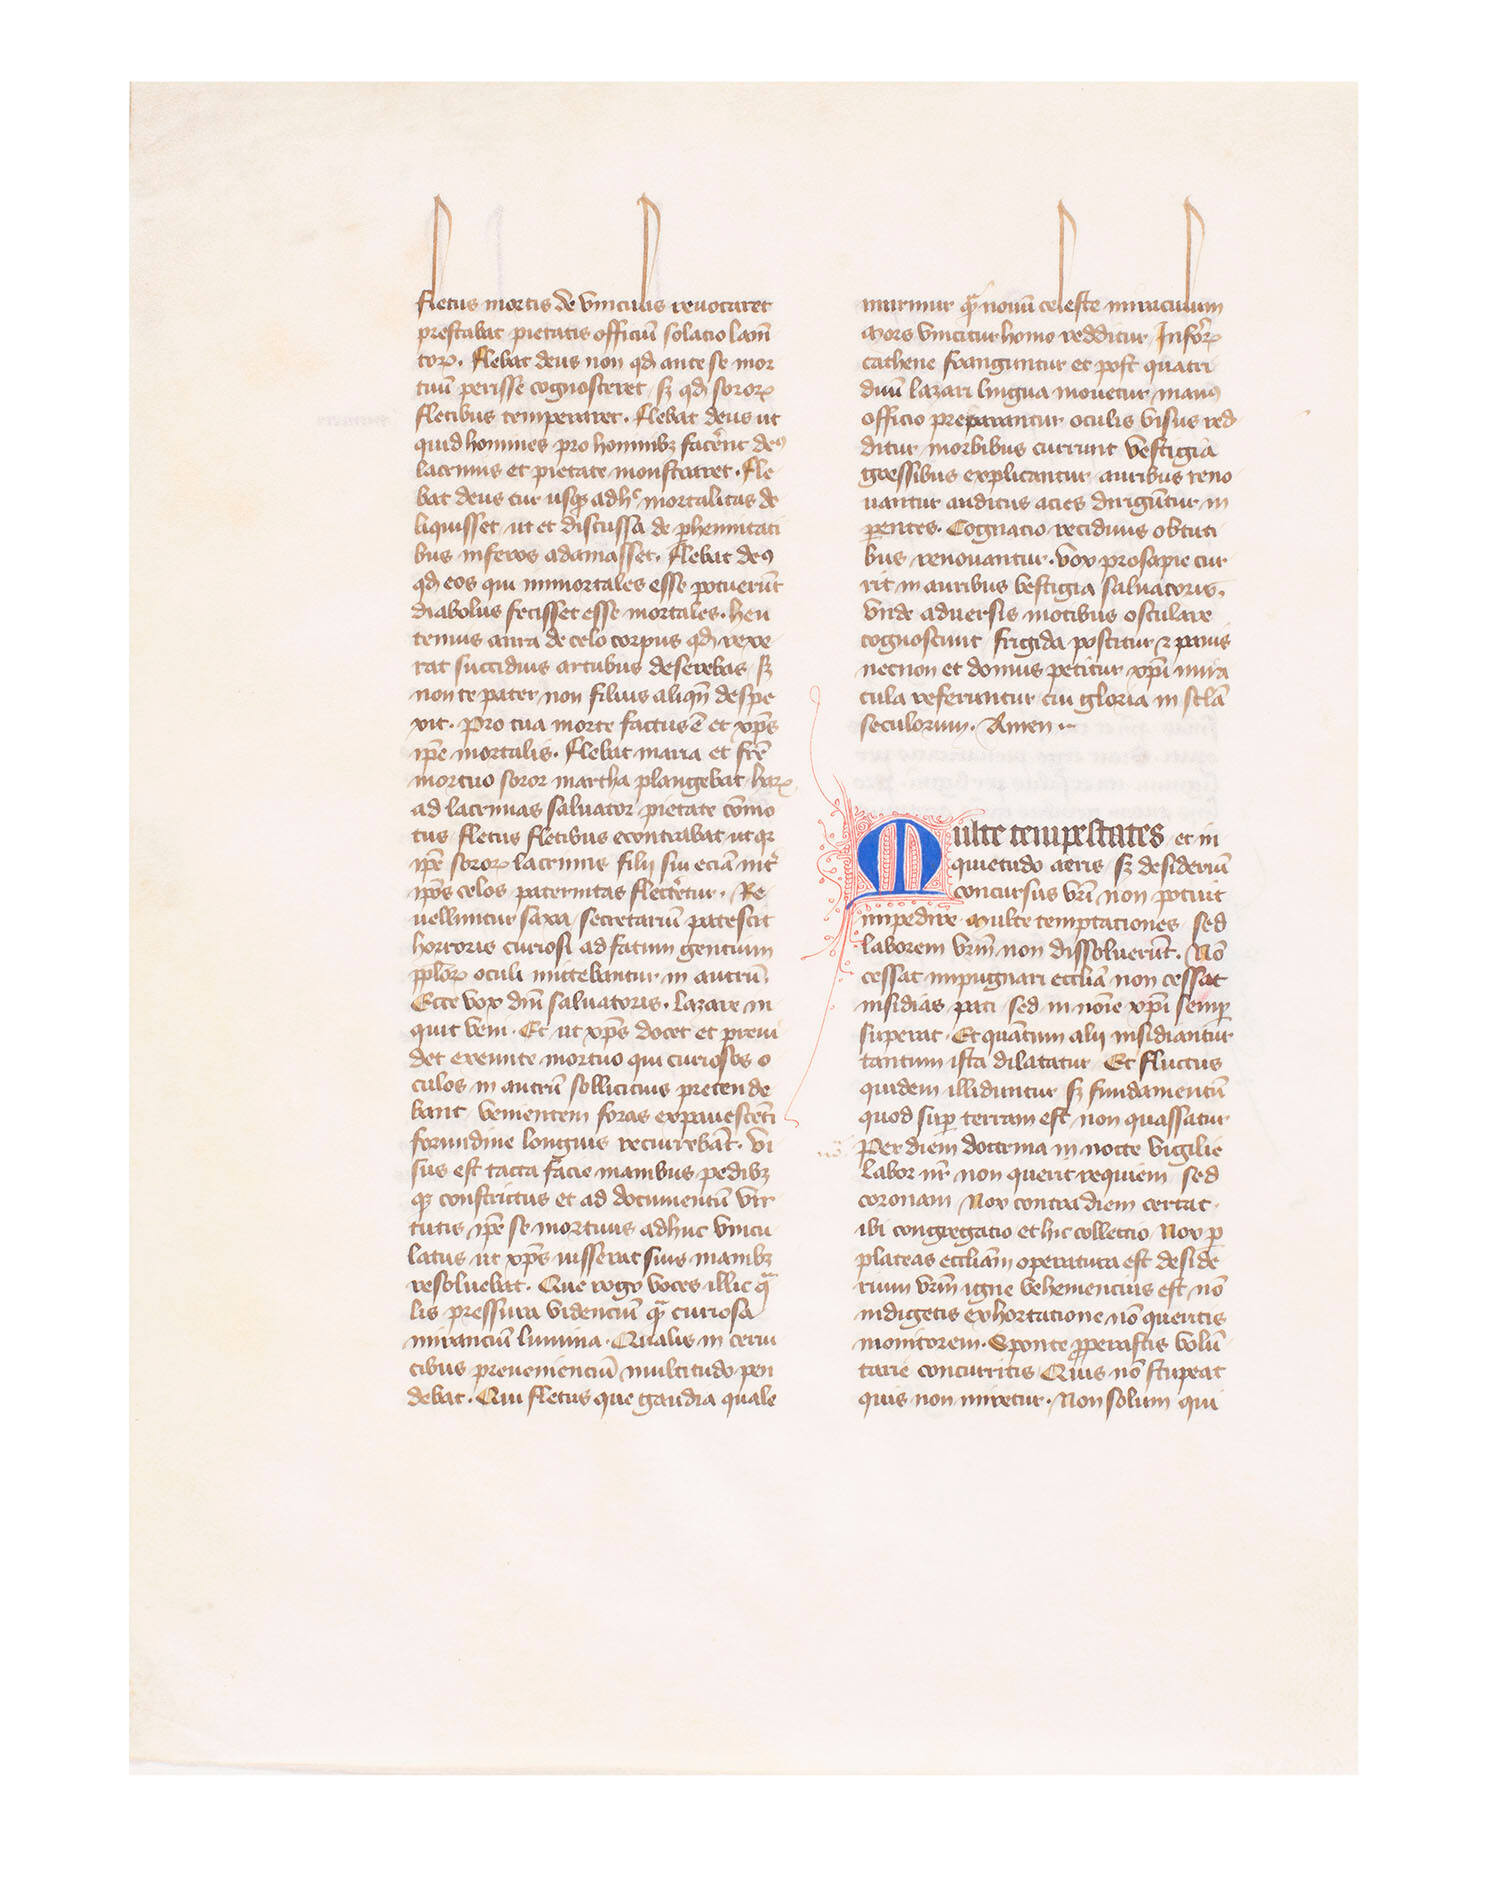 fletus mortis de vinculis reuocaret
prestabat pietatis officiū solacio lam̄
toꝝ. Flebat deus non qd̛ ante se mor
tuū perisse cognosceret sꝫ qd̛ soroꝝ
fletibus temperaret. Flebat deus ut
quid homines pro hominibꝫ facer̄nt deꝰ
lacrimis et pietate monstraret. Fle
bat deus cur usqꝫ adhͨ mortalitas de
liquisset ut et discussa de ꝑhennitati
bus inferos adamasset. Flebat deꝰ
qd̛ eos qui immortales esse potuerūt
diabolus fecisset esse mortales. heu
tenuis aura de celo corpus qd̛ rexe
rat succiduis artubus deserebas sꝫ
non te pater non filius aliqn̄ despe
xit. Pro tua morte factus ē et xp̄s
ip̄e mortalis. Flebat maria et fr̄e
mortuo soror martha plangebat haꝝ
ad lacrimas saluator pietate cōmo
tus fletus fletibus econtrabat ut qꝛ
ip̄e soroꝝ lacrimis filij sui eciā int̄
ip̄os celos paternitas flecter̄tur. Re
uelluntur saxa secretariū patescit
horroris curiosi ad fatum gentium
pp̄loꝝ oculi mittebantur in antrū.
Ecce vox dn̄i saluatoris. lazare in
quit veni. Et ut xp̄s docet et preui
det exeunte mortuo qui curiosos o
culos in antrū sollicitius pretende
bant venientem foras expauescēti
formidine longius recurrebāt. Vi
sus est tacta facie manibus pedibꝫ
qꝫ constrictus et ad documentū vir
tutis ip̄e se mortuus adhuc vincu
latus ut xp̄s iusserat suis manibꝫ
resoluebat. Que rogo voces illic qͣ
lis pressura videnciū qͣ curiosa
miranciū lumina. Qualis in cerui
cibus preueniencium multitudo pen
debat. Qui fletus que gaudia quale
murmur qͣ nouū celeste miraculum
Mors vincitur homo redditur Infeꝝ
cathene franguntur et post quatri
duū lazari lingua mouetur manꝰ
officio preparantur oculis visus red
ditur morbibus currunt vestigia
gressibus explicantur auribus reno
uantur auditus acies dirigūtur in
ꝑentes. Cognacio recidiuis obtuti
bus renouantur. vox prosapie cur
rit in auribus vestigia saluatoris.
Vnde aduersis motibus osculare
cognoscunt frigida poscitur ⁊ panis
necnon et domus petitur xp̄i mira
cula referuntur cui gloria in scl̄a
seculorum. Amen
Multe tempestates et in
quietudo aeris sꝫ desideriū
concursus vr̄i non potuit
impedire Multe temptaciones sed
laborem vr̄m non dissoluerūt. Nō
cessat impugnari eccl̄iā non cessat
insidias pati sed in noīe xp̄i semꝑ
superat. Et quātum alij insidiantur
tantum ista dilatatur Et fluctus
quidem illiduntur sꝫ fundamentū
quod suꝑ terram est non quassatur
Per diem doctrina in nocte vigilie
labor nr̄ non querit requiem sed
coronam Nox contra diem certat
ibi congregatio et hic collectio Nox ꝑ
plateas eccl̄iam operatura est deside
rium vr̄m igne vehemencius est nō
indigetis exhortatione nō queritis
monitorem. Sponte ꝓperastis volū
tarie concurritis Quis nō stupeat
quis non miretur. Non solum qui